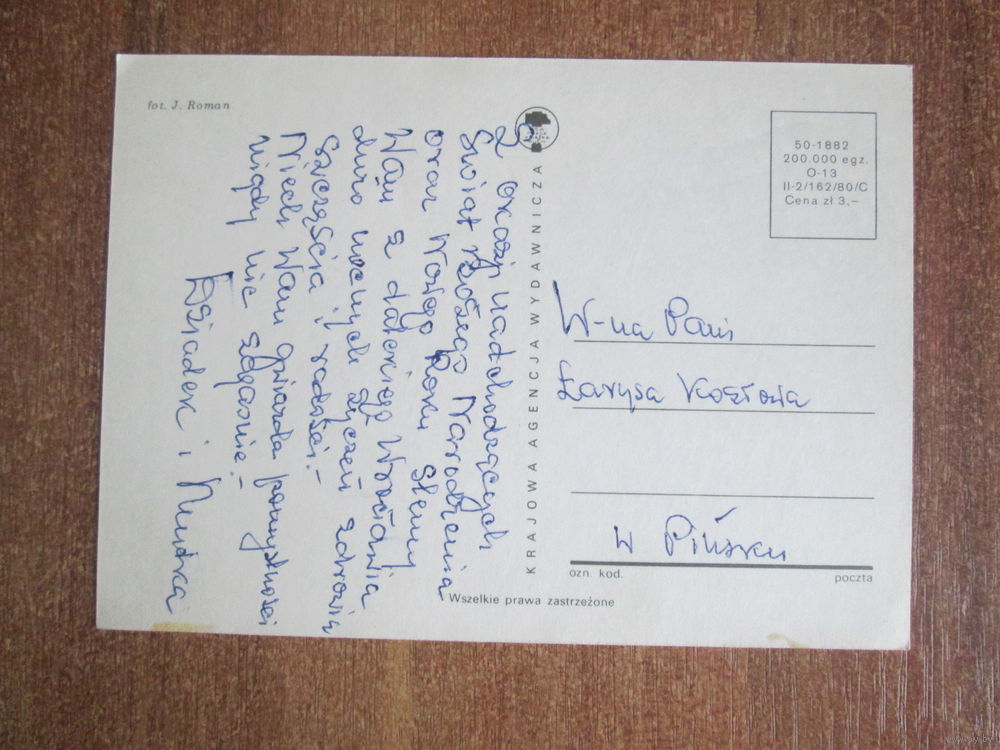 fot. J. Roman
Z okazji nadchodzących
Świąt Bożego Narodzenia
oraz Nowego Roku ślemy
Wam z dalekiego Wrocławia
dużo mocnych życzeń zdrowia
szczęścia i radości.-
Niech Wam gwiazda pomyślności
nigdy nie zgaśnie.-
Dziadek i
KRAJOWA AGENCJA WYDAWNICZA
50-1882
200.000 egz.
O-13
II-2/162/80/C
Cena zł 3,-
W-na Pani
Łarysa Kozłowa
w Pińsku
ozn. kod.
poczta
Wszelkie prawa zastrzeżone